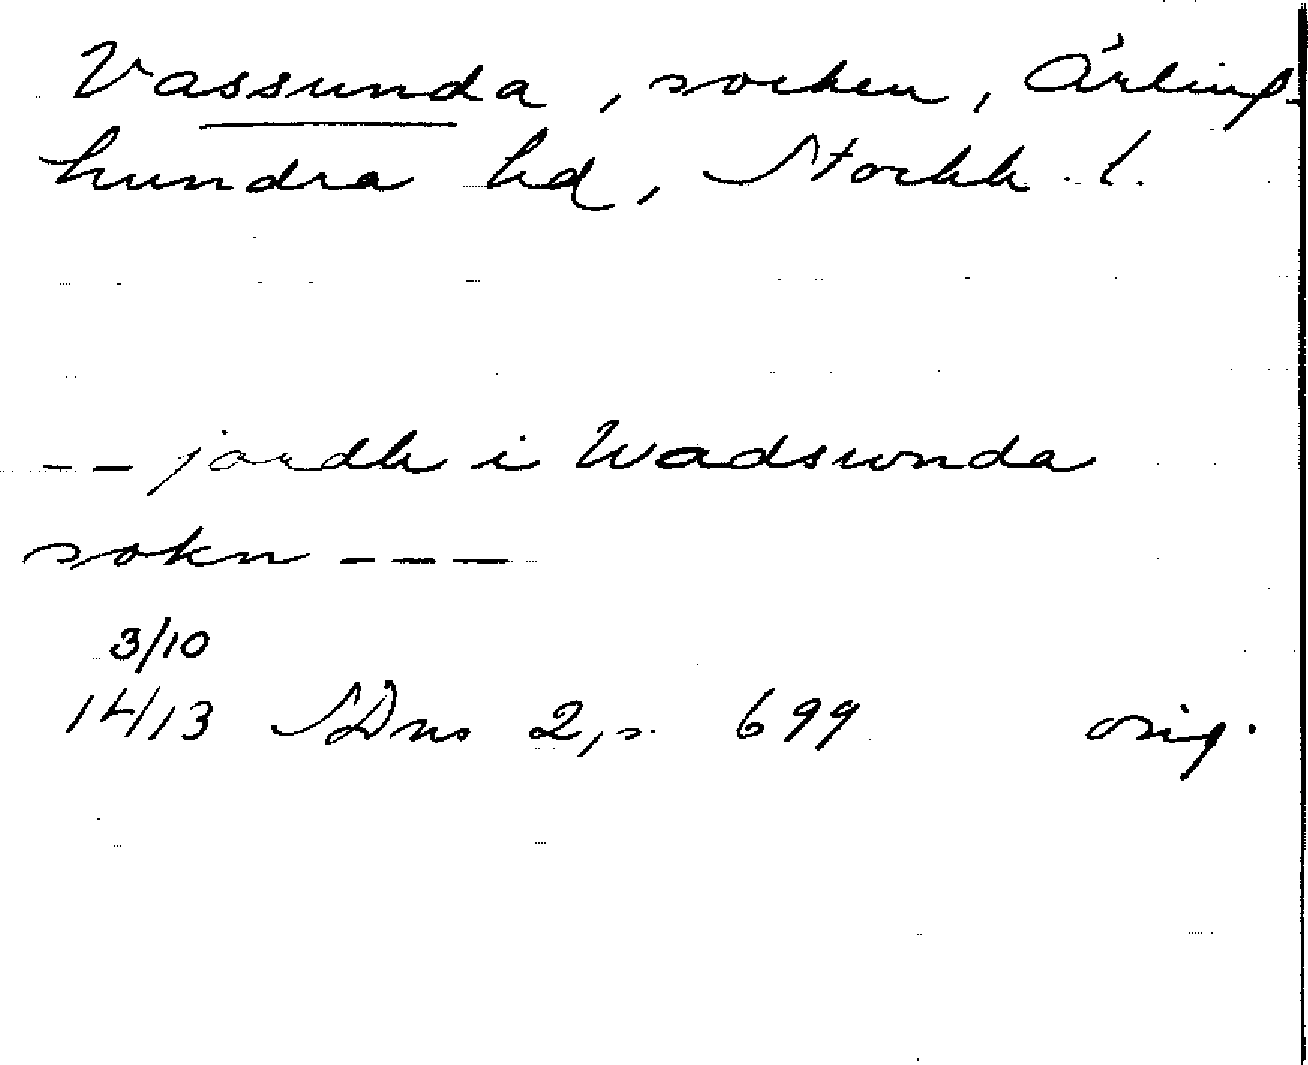 Vassunda, socken, Ärling-
hundra hd, Stockh. l.
-- jordh i Wadsunda
sokn ---
3/10
1413 SDns 2, s. 699 orig.